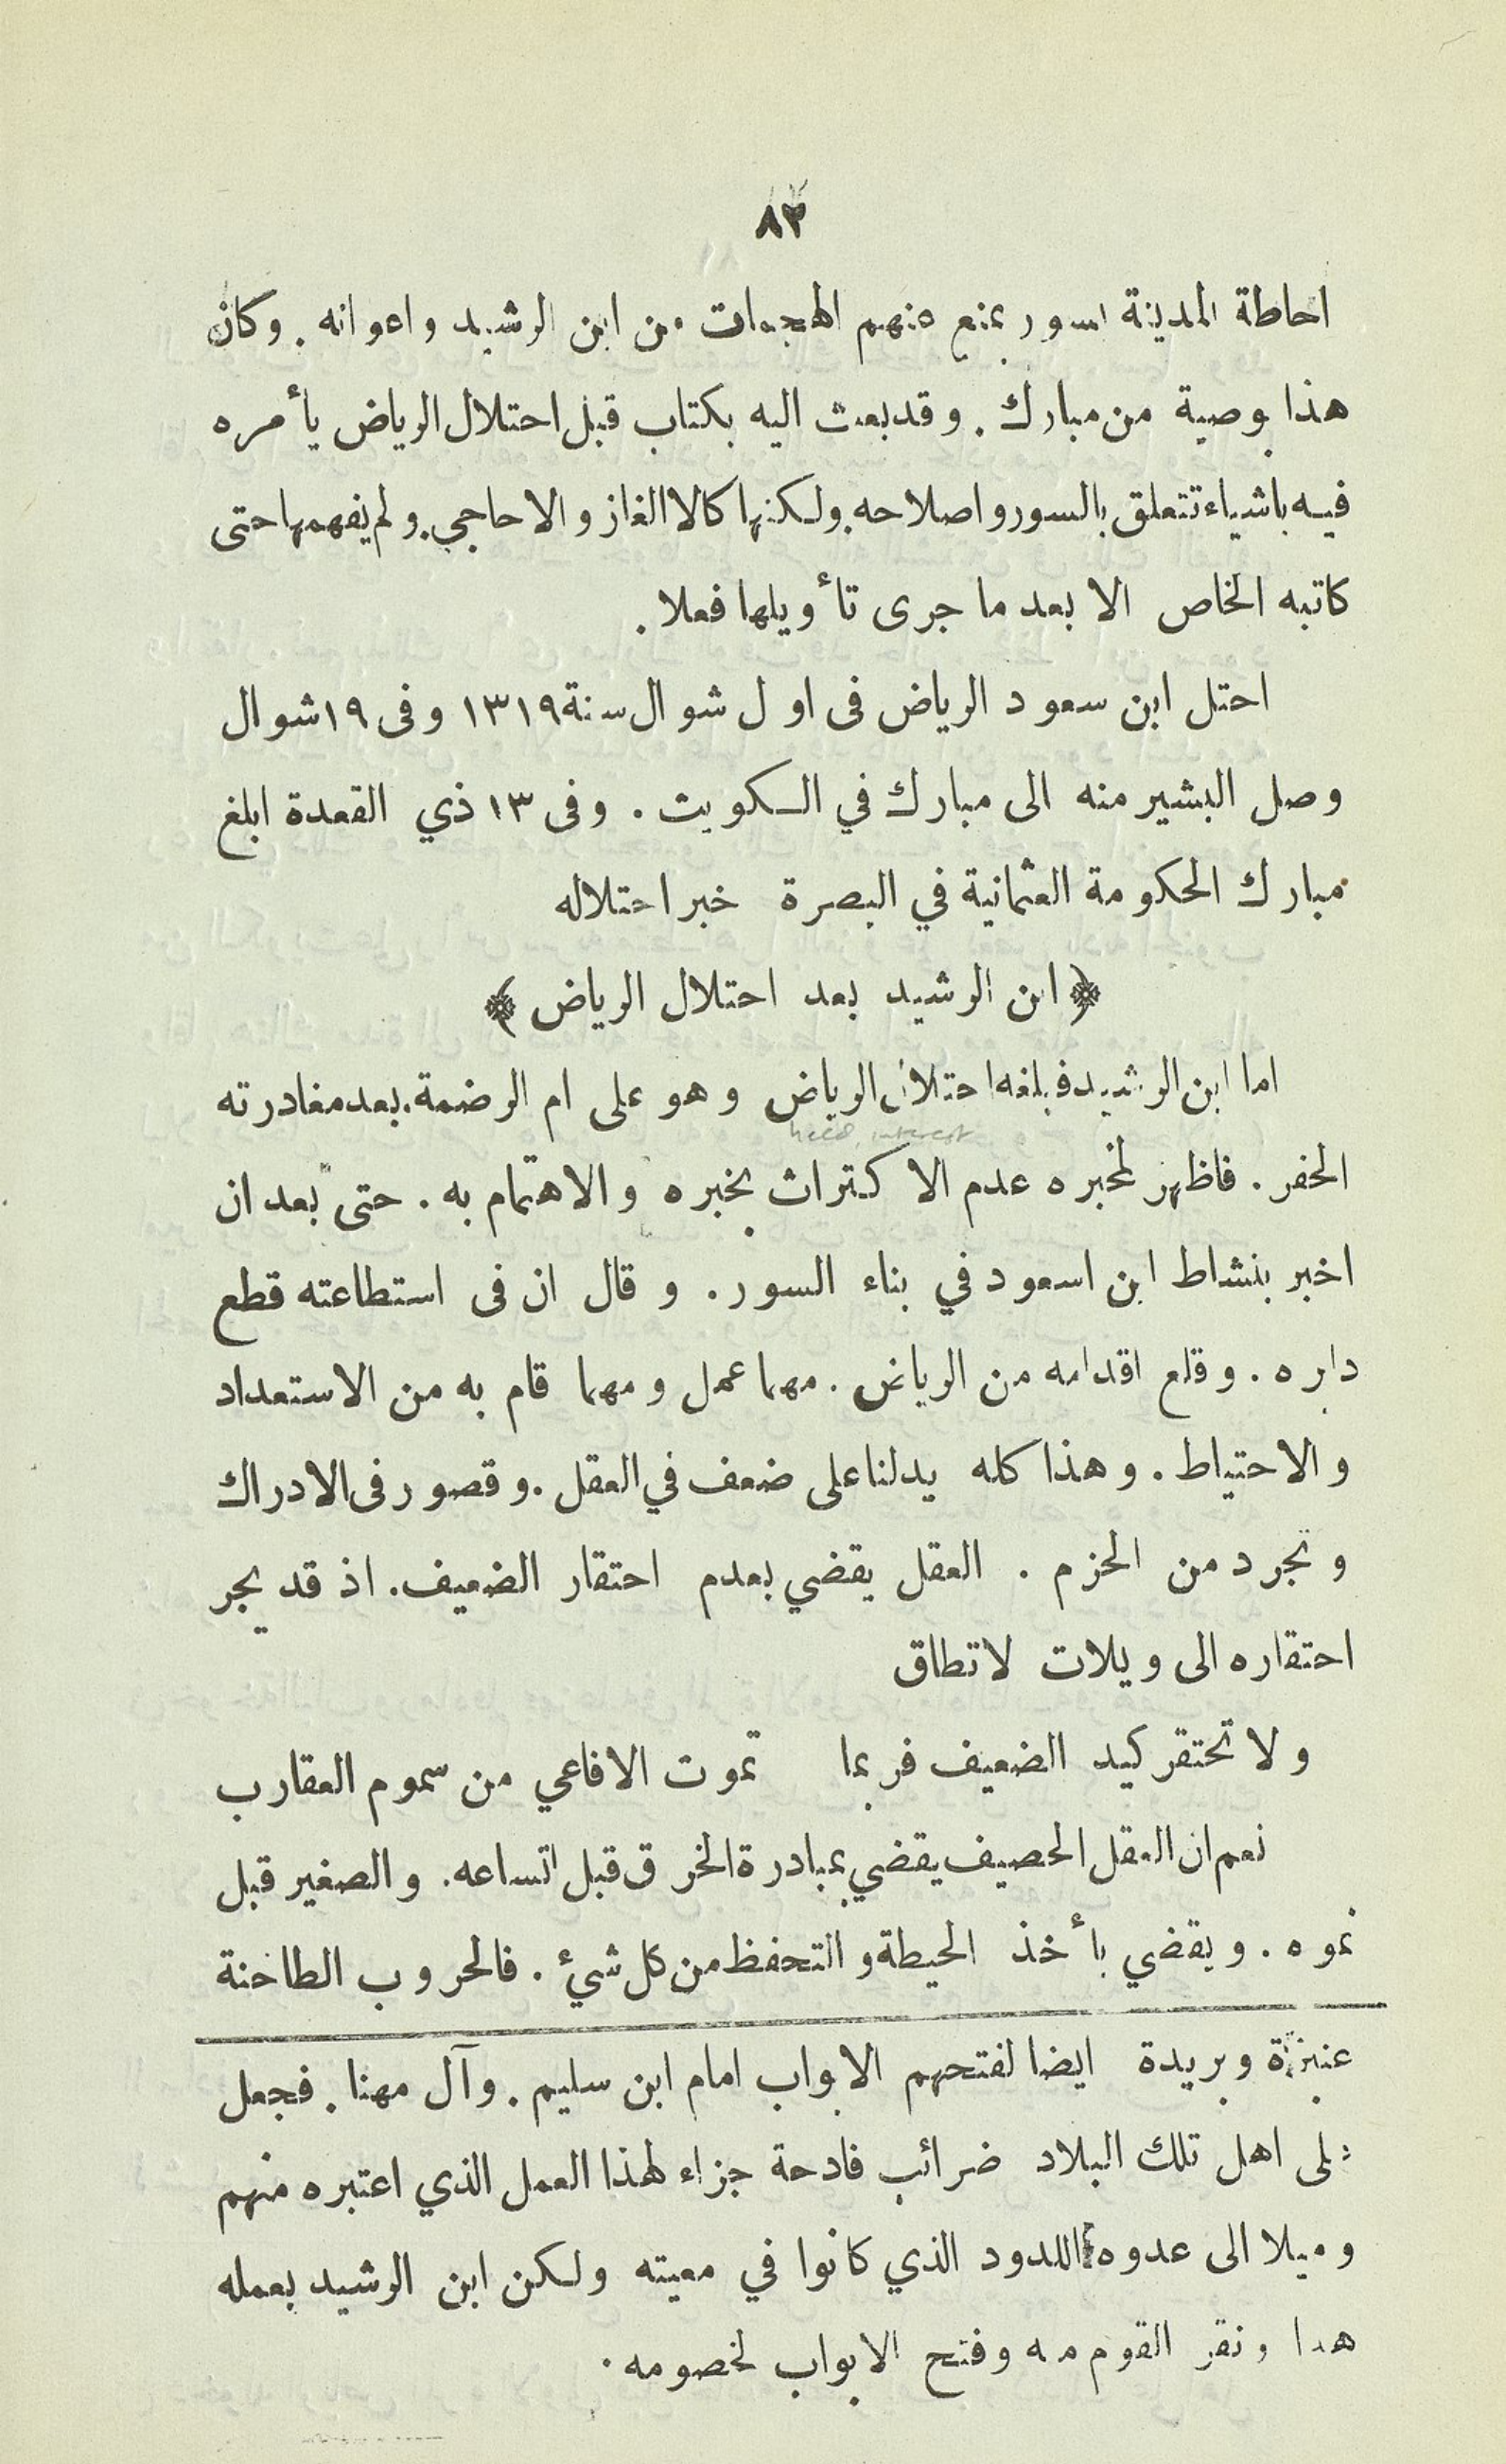 ٨٢
احاطة المدينة بسور يمنع منهم الهجمات من ابن الرشيد واعوانه . وكان
هذا بوصية من مبارك . وقد بعث اليه بكتاب قبل احتلال الرياض يأمره
فيه باشياء تتعلق بالسور واصلاحه . ولكنها كالالغاز والاحاجي . ولم يفهمها حتى
كاتبه الخاص الا بعد ما جرى تأويلها فعلا .
احتل ابن سعود الرياض فى اول شوال سنة ١٣١٩ وفى ١٩ شوال
وصل البشير منه الى مبارك في الكويت . وفى ١٣ ذي القعدة ابلغ
مبارك الحكومة العثمانية في البصرة خبر احتلاله
﴿ ابن الرشيد بعد احتلال الرياض ﴾
اما ابن الرشيد فبلغه احتلال الرياض وهو على ام الرضمة . بعد مغادرته
heed, interest
الحفر . فاظهر لمخبره عدم الاكتراث بخبره والاهتمام به . حتى بعد ان
اخبر بنشاط ابن اسعود في بناء السور . وقال ان فى استطاعته قطع
دابره . وقلع اقدامه من الرياض . مهما عمل ومهما قام به من الاستعداد
والاحتياط . وهذا كله يدلنا على ضعف في العقل . وقصور فى الادراك
وتجرد من الحزم . العقل يقضي بعدم احتقار الضعيف . اذ قد يجر
احتقاره الى ويلات لا تطاق
ولا تحتقر كيد الضعيف فربما تموت الافاعي من سموم العقارب
نعم ان العقل الحصيف يقضي بمبادرة الخرق قبل اتساعه . والصغير قبل
نموه . ويقضي بأخذ الحيطة والتحفظ من كل شيء . فالحروب الطاحنة
عنيزة وبريدة ايضا لفتحهم الابواب امام ابن سليم . وآل مهنا . فجعل
على اهل تلك البلاد ضرائب فادحة جزاء لهذا العمل الذي اعتبره منهم
وميلا الى عدوه اللدود الذي كانوا في معيته ولكن ابن الرشيد بعمله
هذا ونفر القوم منه وفتح الابواب لخصومه .